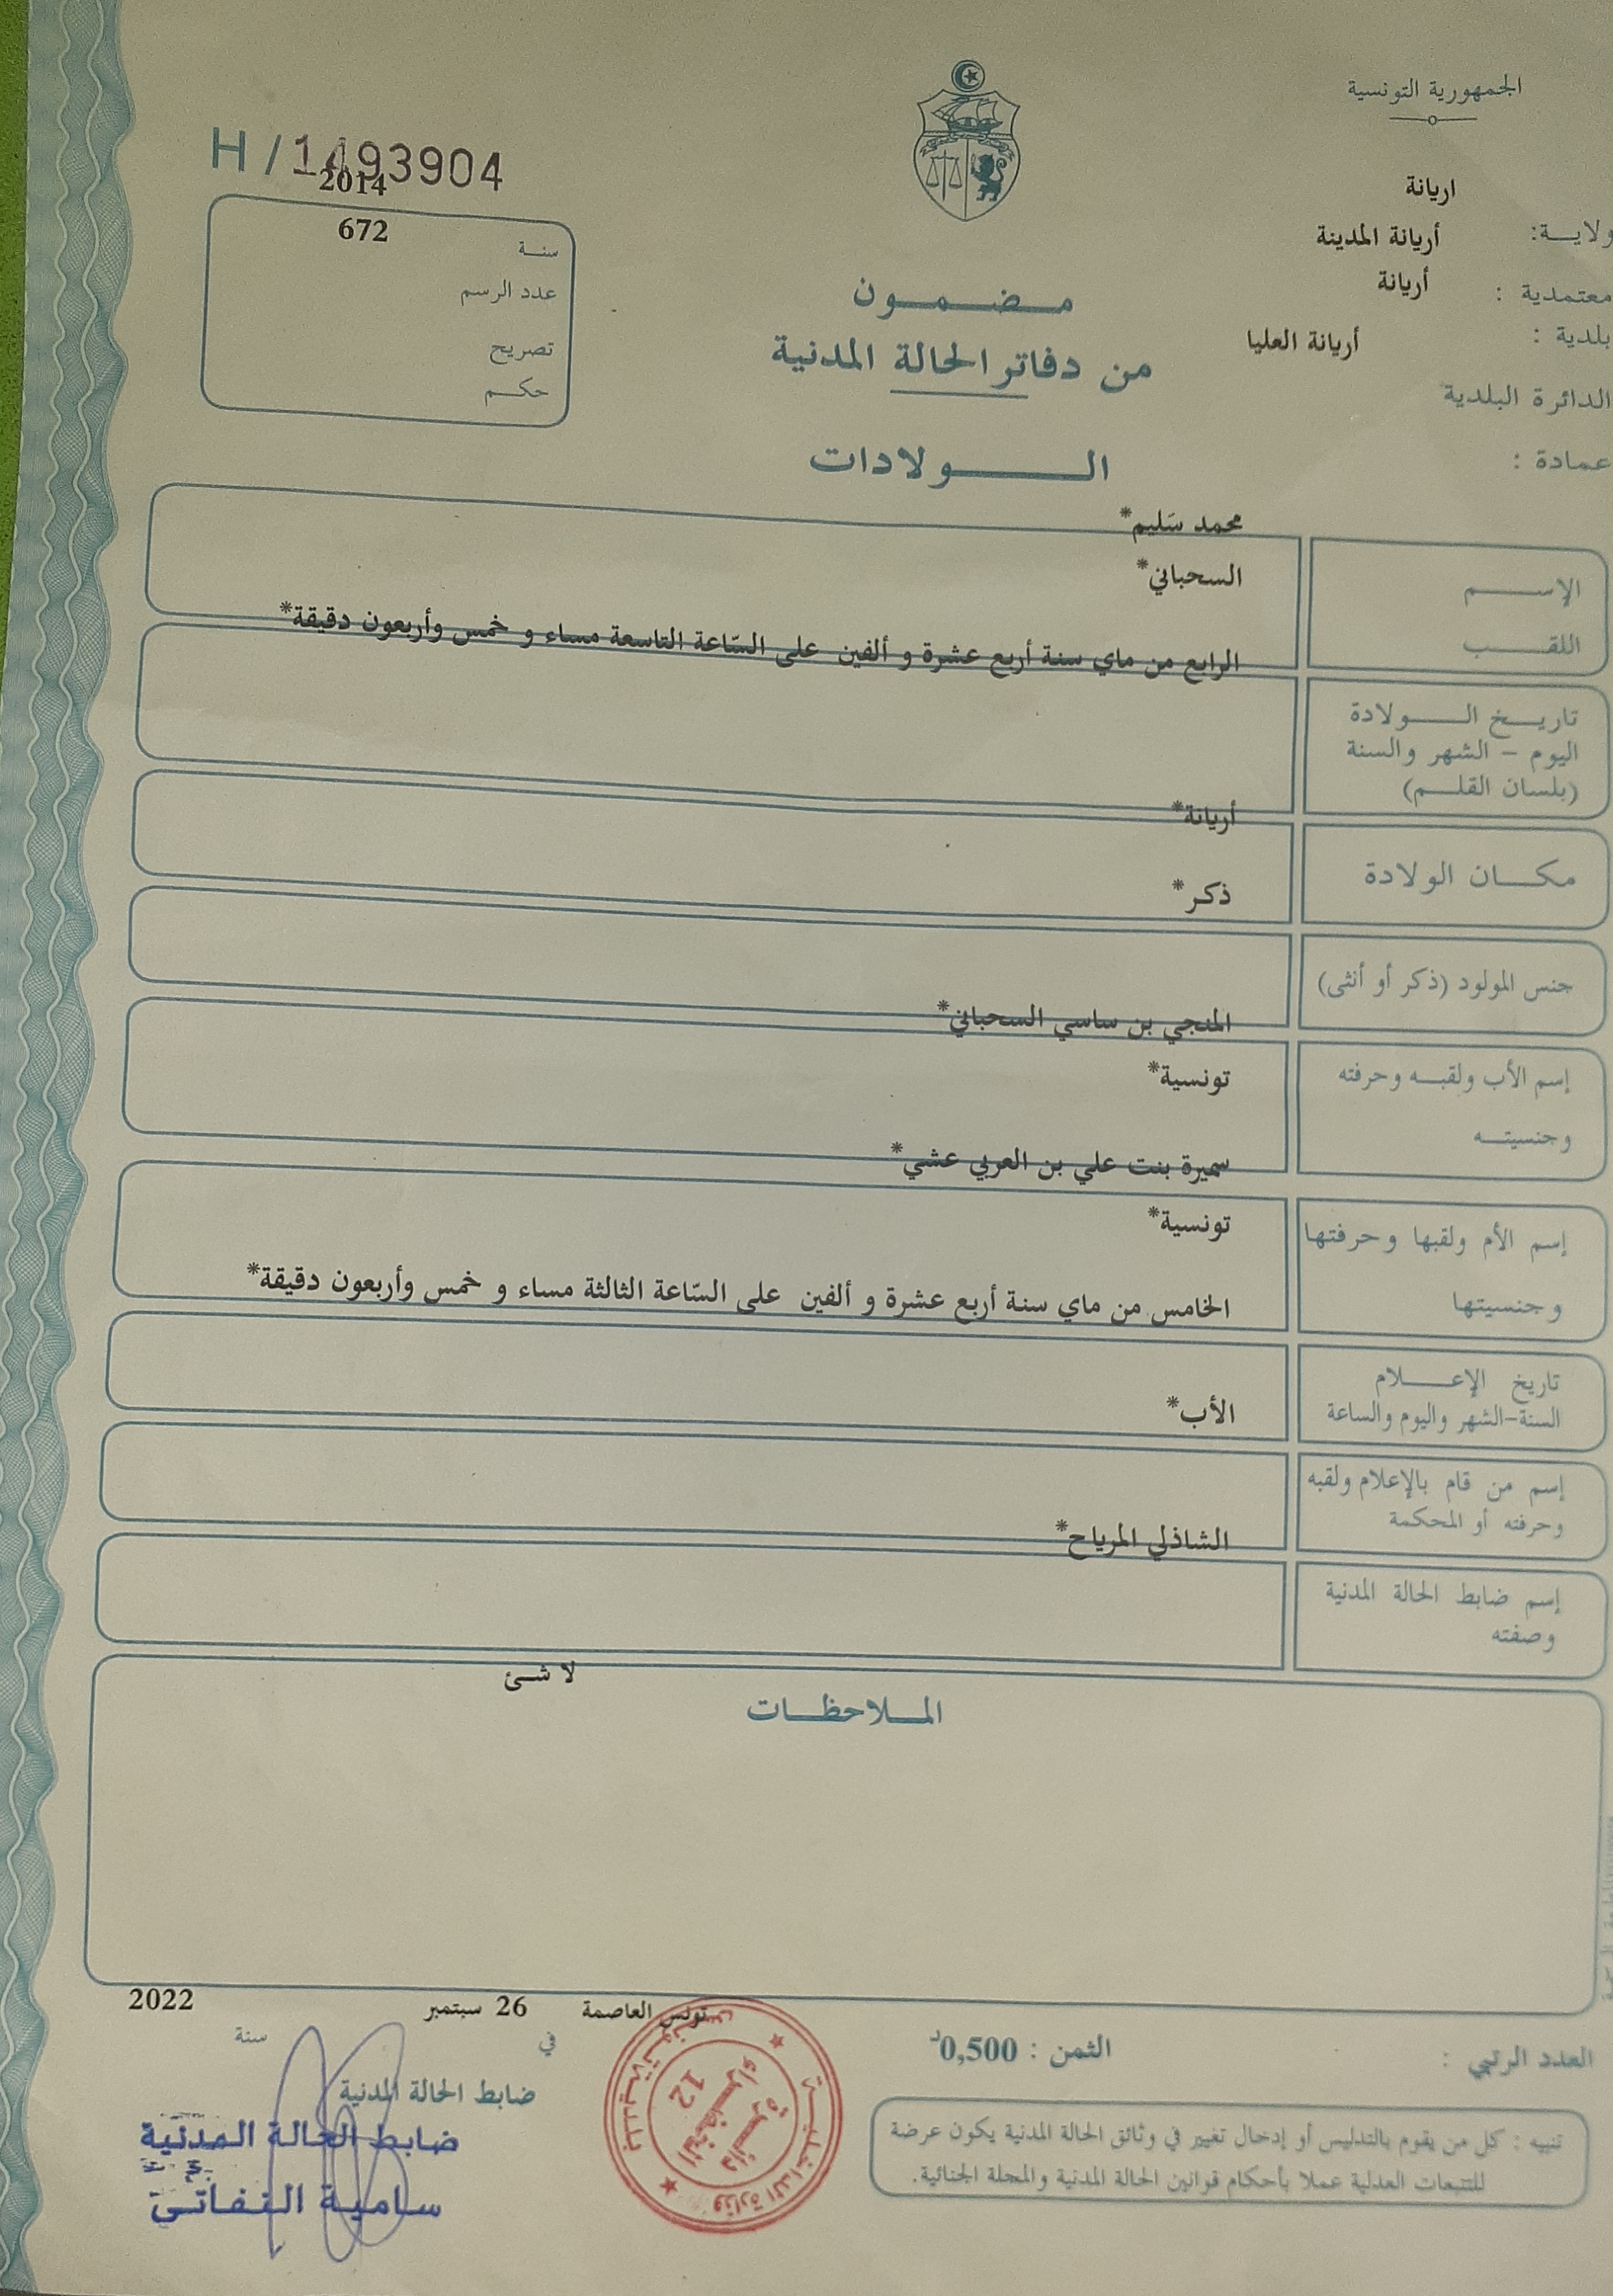 الجمهورية التونسية
H / 1493904
2014
672
سنة
عدد الرسم
تصريح
حكم
اريانة
ولاية:
أريانة المدينة
معتمدية :
أريانة
بلدية :
أريانة العليا
الدائرة البلدية
عمادة :
مضمون
من دفاتر الحالة المدنية
الولادات
محمد سَليم*
الإسم
السحباني*
اللقب
الرابع من ماي سنة أربع عشرة و ألفين على السّاعة التاسعة مساء و خمس وأربعون دقيقة*
تاريخ الولادة
اليوم - الشهر والسنة
(بلسان القلم)
أريانة*
مكان الولادة
ذكر*
جنس المولود (ذكر أو أنثى)
المنجي بن ساسي السحباني*
إسم الأب ولقبه وحرفته
تونسية*
وجنسيته
سميرة بنت علي بن العربي عشي*
إسم الأم ولقبها وحرفتها
تونسية*
وجنسيتها
الخامس من ماي سنة أربع عشرة و ألفين على السّاعة الثالثة مساء و خمس وأربعون دقيقة*
تاريخ الإعلام
السنة-الشهر واليوم والساعة
الأب*
إسم من قام بالإعلام ولقبه
وحرفته أو المحكمة
الشاذلي المرياح*
إسم ضابط الحالة المدنية
وصفته
لا شئ
الملاحظات
تونس العاصمة
26 سبتمبر
2022
في
سنة
العدد الرتبي :
الثمن : 0,500د
ضابط الحالة المدنية
ضابط الحالة المدنية
سامية النفاتي
وزارة الداخلية
دائرة
الخضراء
12
تنبيه : كل من يقوم بالتدليس أو إدخال تغيير في وثائق الحالة المدنية يكون عرضة
للتتبعات العدلية عملا بأحكام قوانين الحالة المدنية والمجلة الجنائية.